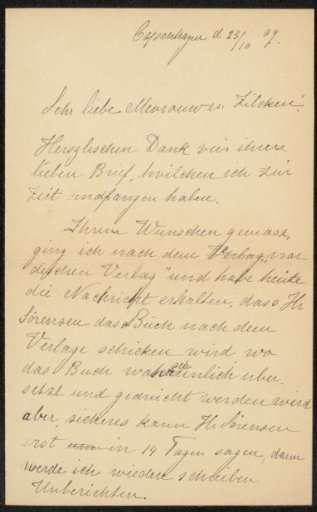 Copenhagen d 23/10 09.
Sehr liebe Mevrouw Zilcken!
Herzlischen Dank vür ihren
lieben Brief, wilchen ich zur
Zeit undfangen haben.
Ihren Wunschen gemäsz,
ging ich nach dem "Verlag, nor
dischen Verlag" und habe heute
die Nachricht erhalten, dass Hr
Sörensen das Buch nach dem
Verlage schicken wird, wo
das Buch uber
setzt und gedruckt werden wird
aber, sicheres kann Hr Sörensen
erst in 14 Tagen sagen, dann
werde ich wieder schreiben
Unberichten.